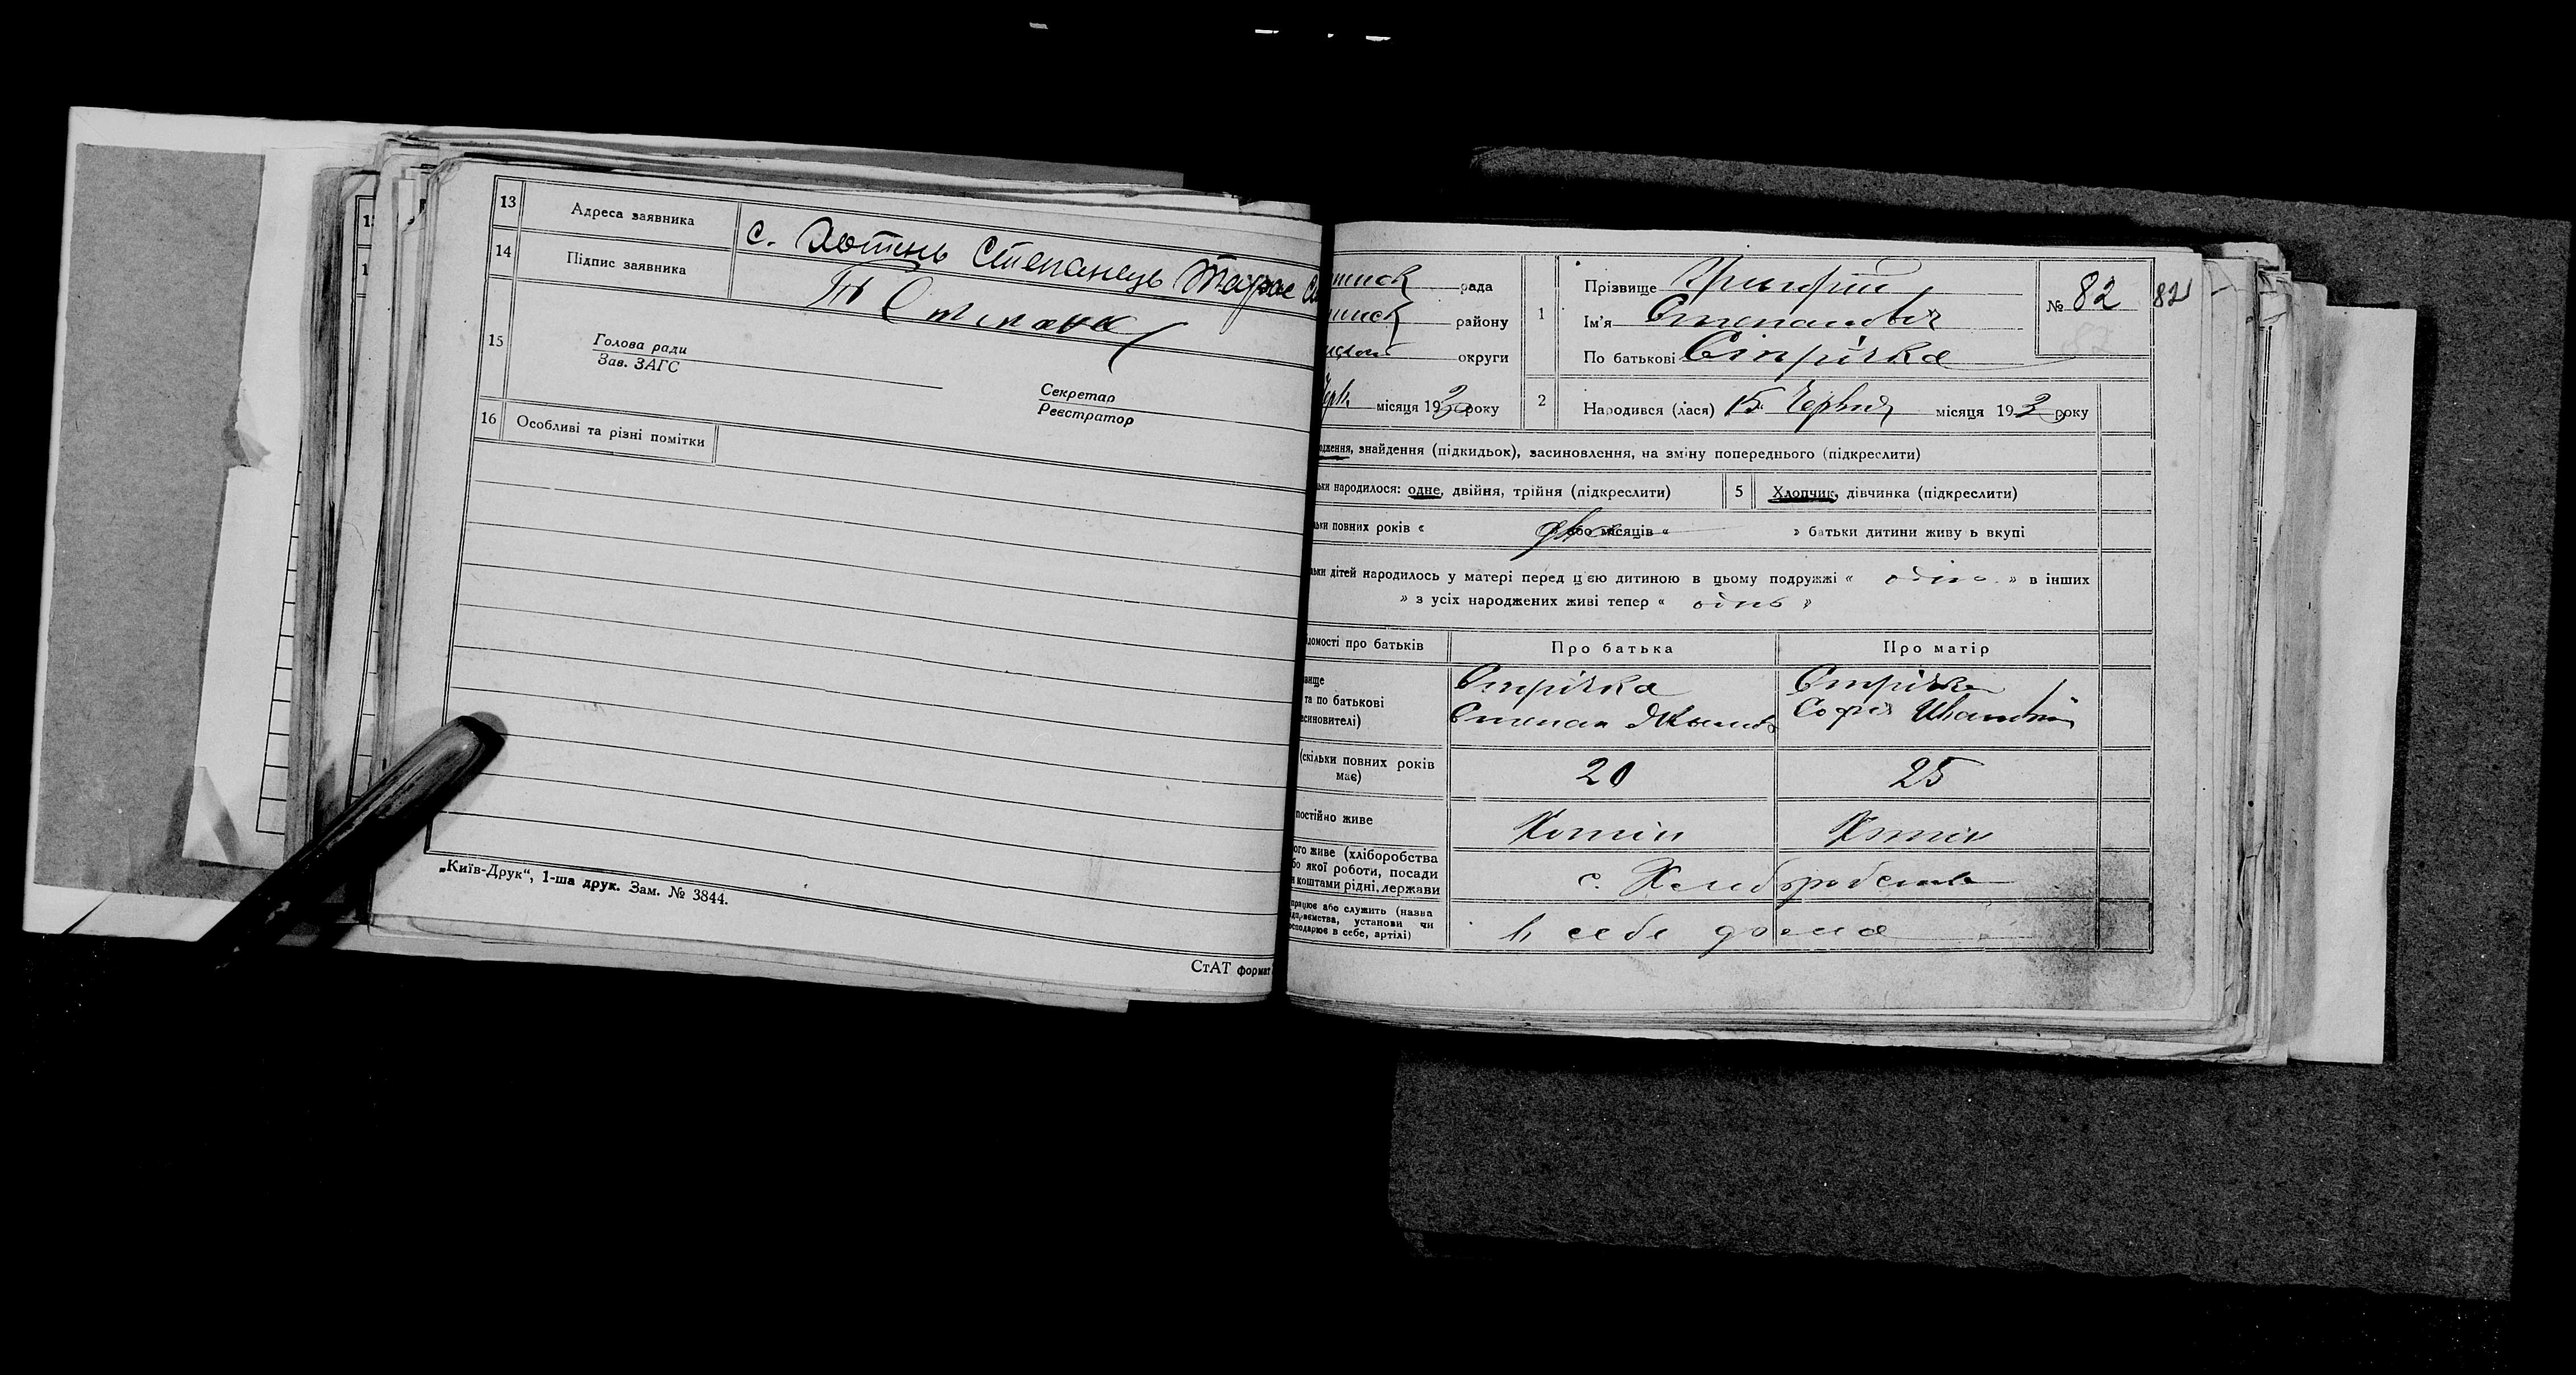 13 Адреса заявника с. Хотінь Степанець Тарас
14 Підпис заявника Т Степане
15 Голова ради
Зав. ЗАГС
Секретар
Реєстратор
16 Особливі та різні помітки
„Київ-Друк“, 1-ша друк. Зам. № 3844.
СтАТ формат
тинск рада
тинск району
округи
Черв. місяця 192 року
1 Прізвище Григорій
Ім'я Степанович
По батькові Стрічка
№ 82 82
2 Народився (лася) 15 Червня місяця 19 року
одження, знайдення (підкидьок), засиновлення, на зміну попереднього (підкреслити)
льки народилося: одне, двійня, трійня (підкреслити)
5 Хлопчик, дівчинка (підкреслити)
льки повних років « два » або місяців « » батьки дитини живу ь вкупі
льки дітей народилось у матері перед цією дитиною в цьому подружжі « одно » в інших
» з усіх народжених живі тепер « одно »
домості про батьків Про батька Про матір
вище
та по батькові
асиновителі)
Стрічка
Степан
Стрічка
Софія Ивановна
(скільки повних років
має)
20 25
постійно живе Хотін Хотін
ого живе (хліборобства
бо якої роботи, посади
и коштами рідні, держави
с. Хлеборобства
працює або служить (назва
підприємства, установи чи
осподарює в себе, артілі)
в себе дома